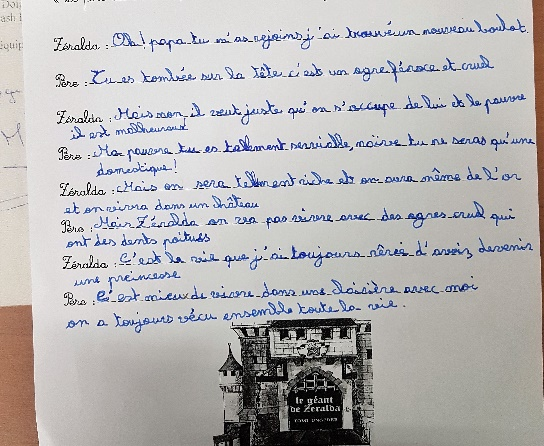 Zéralda : Oh ! papa tu m'as rejoins j'ai trouvé un nouveau boulot.
Père : Tu es tombée sur la tête c'est un ogre féroce et cruel
Zéralda : Mais non il veut juste qu'on s'occupe de lui et le pauvre
il est malheureux
Père : Ma pauvre tu es tellement serviable, naïve tu ne seras qu'une
domestique !
Zéralda : Mais on sera tellement riche et on aura même de l'or
et on vivra dans un château
Père : Mais Zéralda on va pas vivre avec des ogres cruel qui
ont des dents pointus
Zéralda : C'est la vie que j'ai toujours rêvée d'avoir, devenir
une princesse
Père : C'est mieux de vivre dans une clairière avec moi
on a toujours vécu ensemble toute la vie.
le géant
de Zeralda
TOMI UNGERER